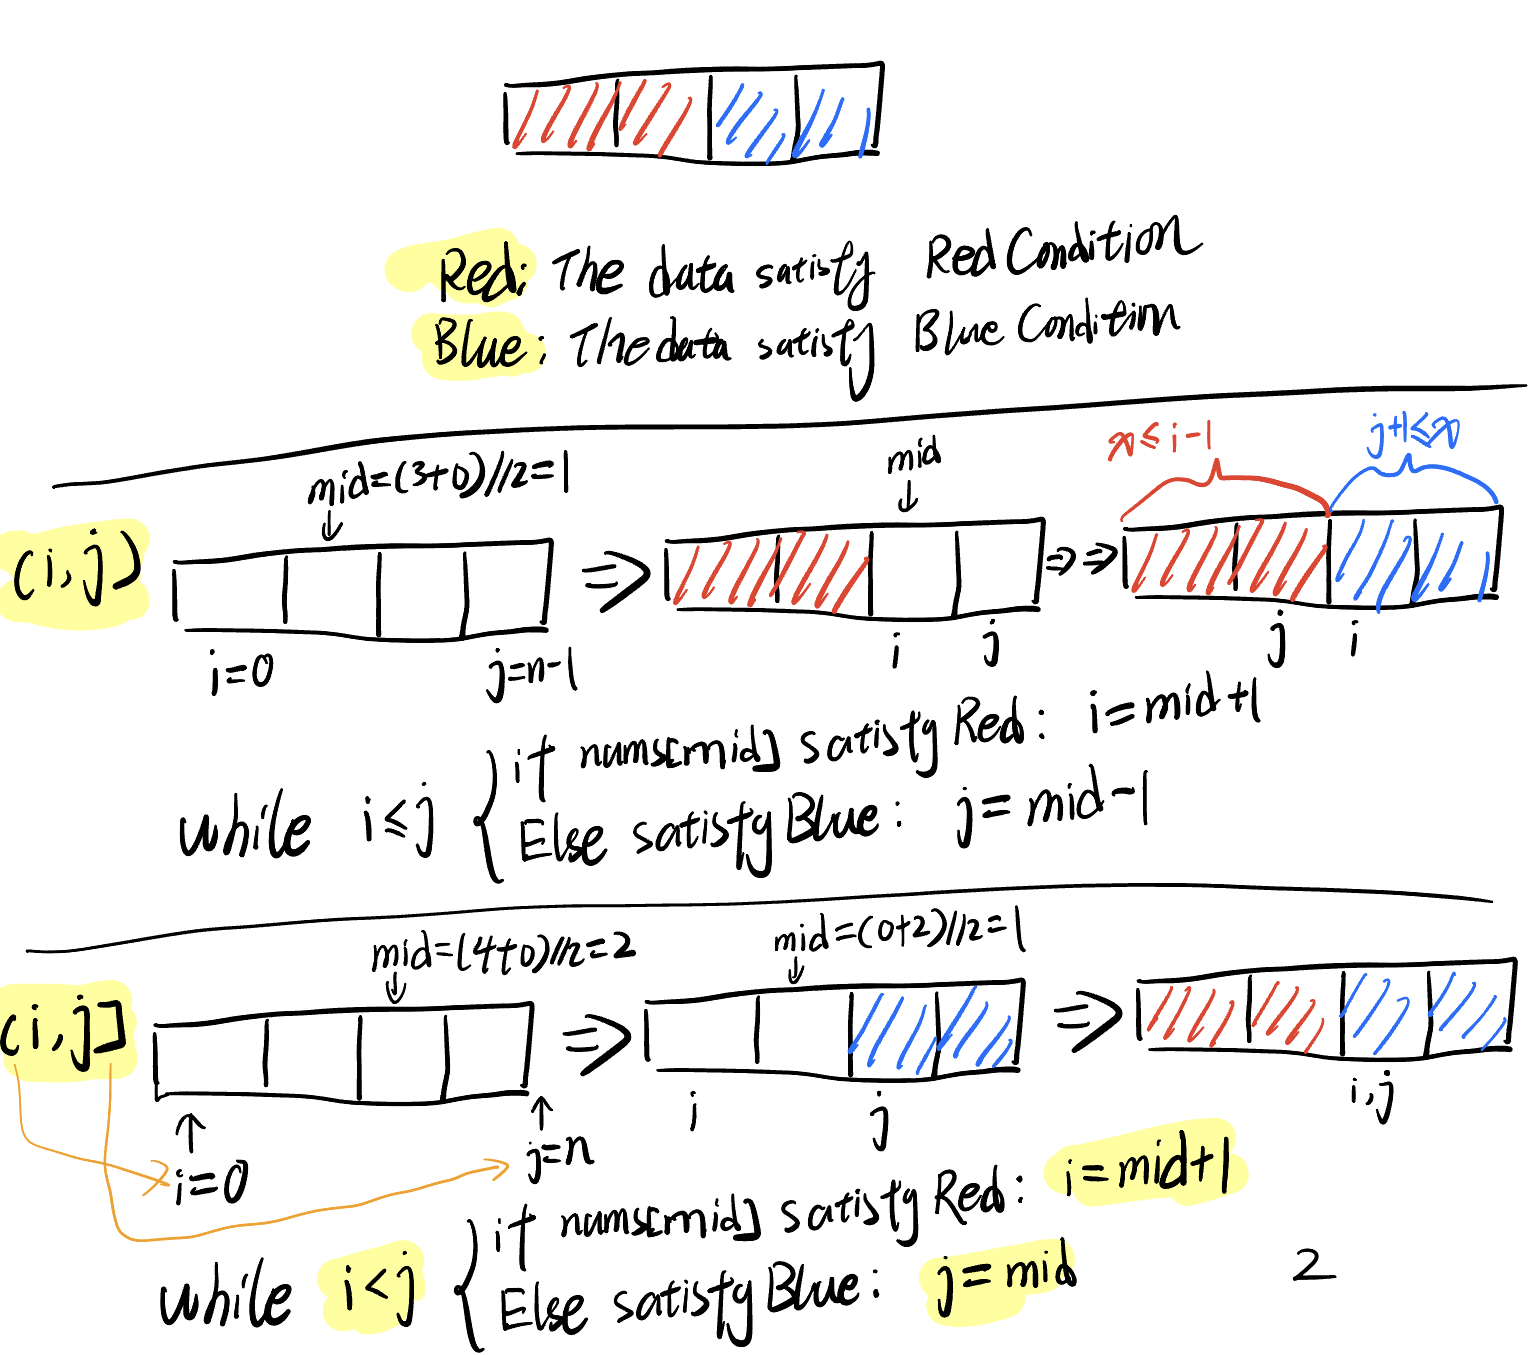 Red: The data satisfy Red Condition
Blue: The data satisfy Blue Condition
x≤i-1
j+1≤x
mid=(3+0)//2=1
mid
(i,j)
i=0
j=n-1
i
j
j
i
while i≤j
if nums[mid] satisfy Red: i=mid+1
Else satisfy Blue: j=mid-1
mid=(4+0)//2=2
mid=(0+2)//2=1
(i,j]
i=0
j=n
i
j
i,j
while i<j
if nums[mid] satisfy Red: i=mid+1
Else satisfy Blue: j=mid
2